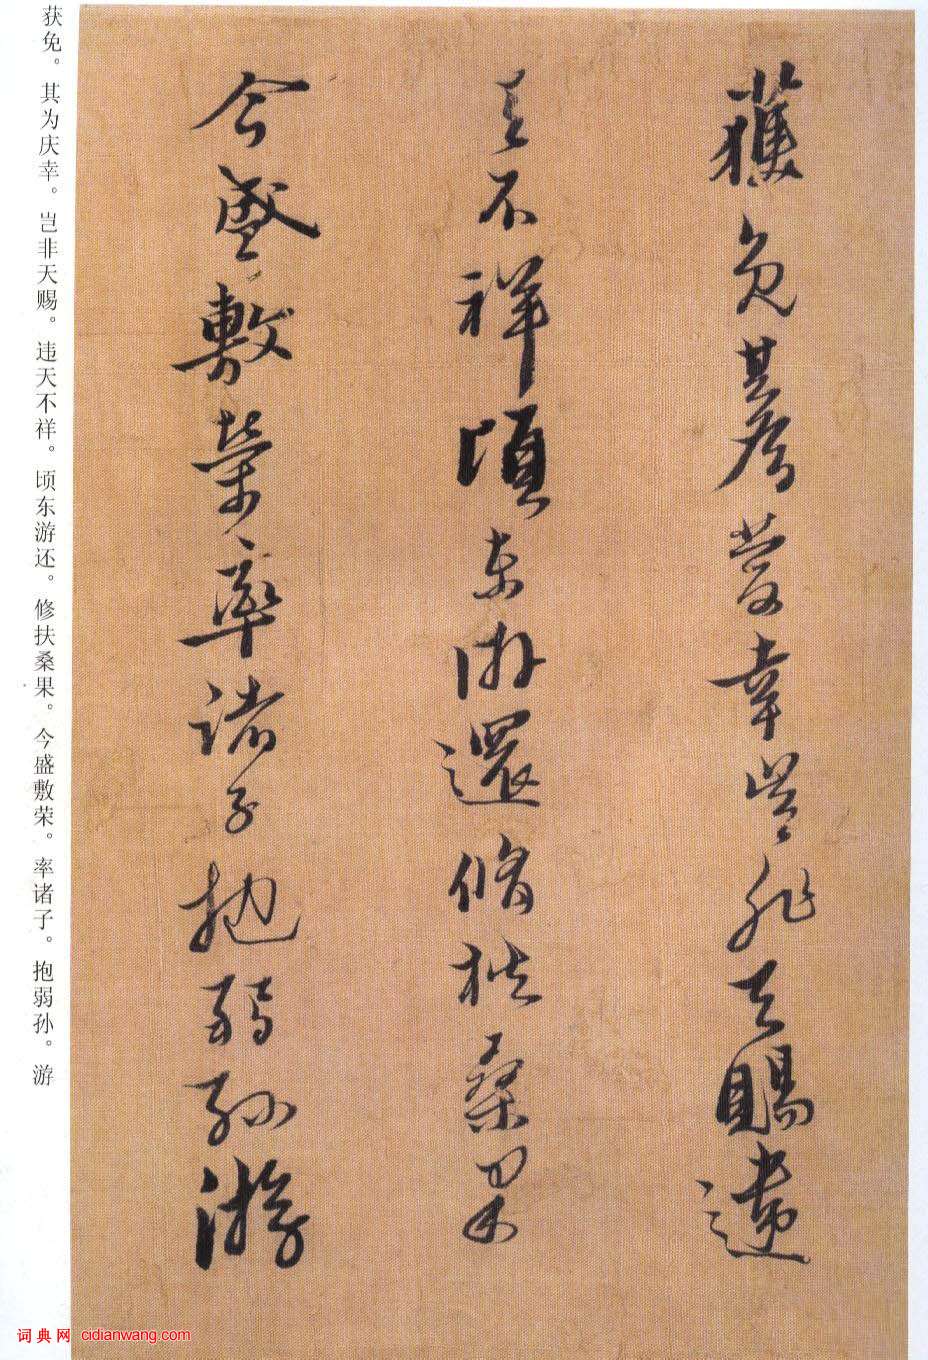 獲免其為慶幸豈非天賜違
天不祥頃東游還脩扶桑果
今盛敷榮率諸子抱弱孫游
获免。其为庆幸。岂非天赐。违天不祥。顷东游还。修扶桑果。今盛敷荣。率诸子。抱弱孙。游
词典网 cidianwang.com